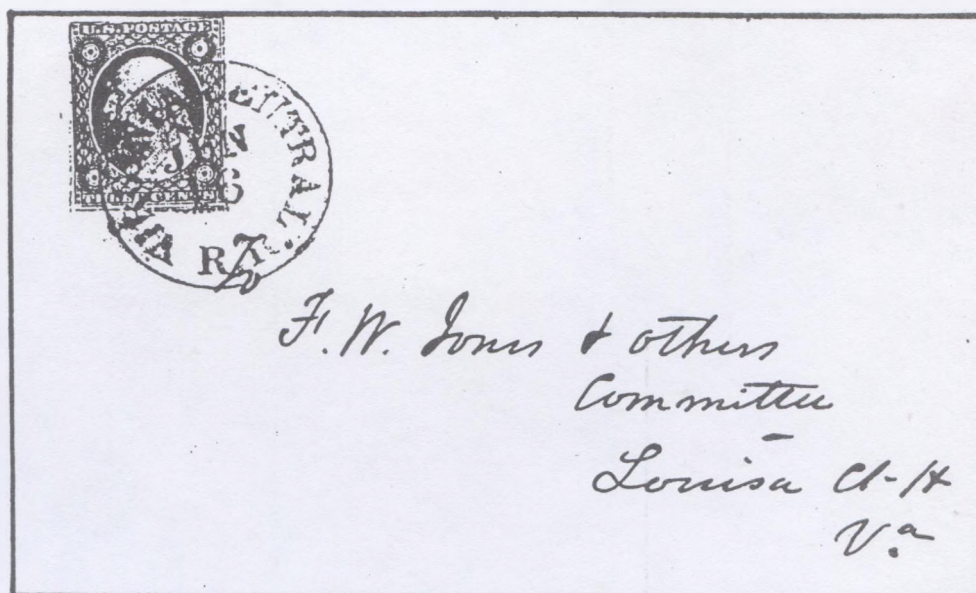 U.S. POSTAGE
THREE CENTS
CENTRAL
R.R.
To
F. W. Jones & others
Committee
Louisa Ct-H
Va